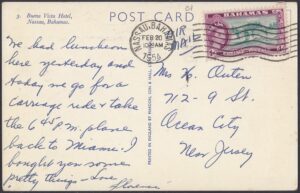 3. Buena Vista Hotel,
Nassau, Bahamas.
POST CARD
NASSAU·BAHAMAS
FEB 20
10 30 AM
195
AIR
MAIL
BAHAMAS
We had luncheon
here yesterday and
today we go for a
carriage ride & take
the 6 45 P.M. plane
back to Miami. I
bought you some
pretty things — Love
Florence
Mrs H. Osten
712-9 St.
Ocean City
New Jersey